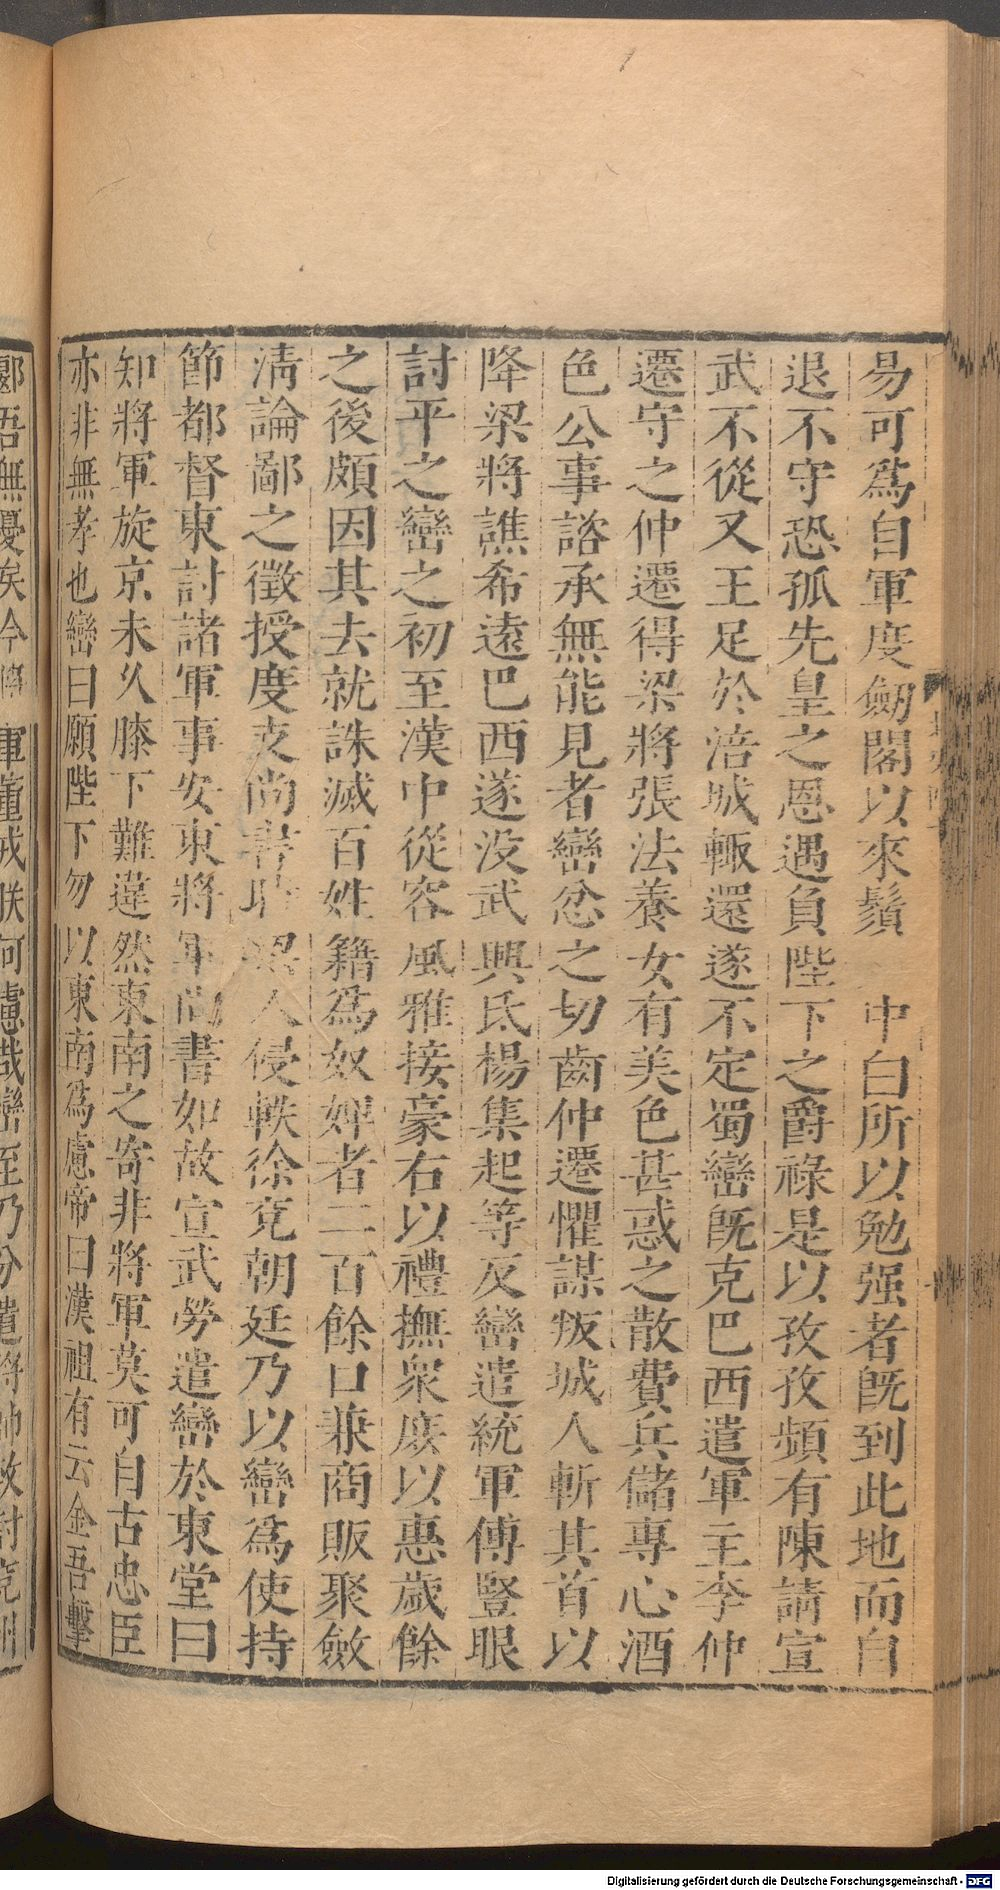 易可爲自軍度劒閣以來鬚 中白所以勉强者旣到此地而自
退不守恐孤先皇之恩遇負陛下之爵祿是以孜孜頻有陳請宣
武不從又王足於涪城輙還遂不定蜀巒旣克巴西遣軍主李仲
遷守之仲遷得梁將張法養女有美色甚惑之散費兵儲專心酒
色公事諮承無能見者巒忿之切齒仲遷懼謀叛城人斬其首以
降梁將譙希遠巴西遂没武興氐楊集起等反巒遣統軍傅豎眼
討平之巒之初至漢中從容風雅接豪右以禮撫衆庶以惠歲餘
之後頗因其去就誅滅百姓籍爲奴婢者二百餘口兼商販聚斂
淸論鄙之徵授度支尚書時梁人侵軼徐兗朝廷乃以巒爲使持
節都督東討諸軍事安東將軍尚書如故宣武勞遣巒於東堂曰
知將軍旋京未久膝下難違然東南之寄非將軍莫可自古忠臣
亦非無孝也巒曰願陛下勿以東南爲慮帝曰漢祖有云金吾擊
鄾吾無憂矣今將軍董戎朕何慮哉巒至乃分遣將帥致討兗州
Digitalisierung gefördert durch die Deutsche Forschungsgemeinschaft - DFG